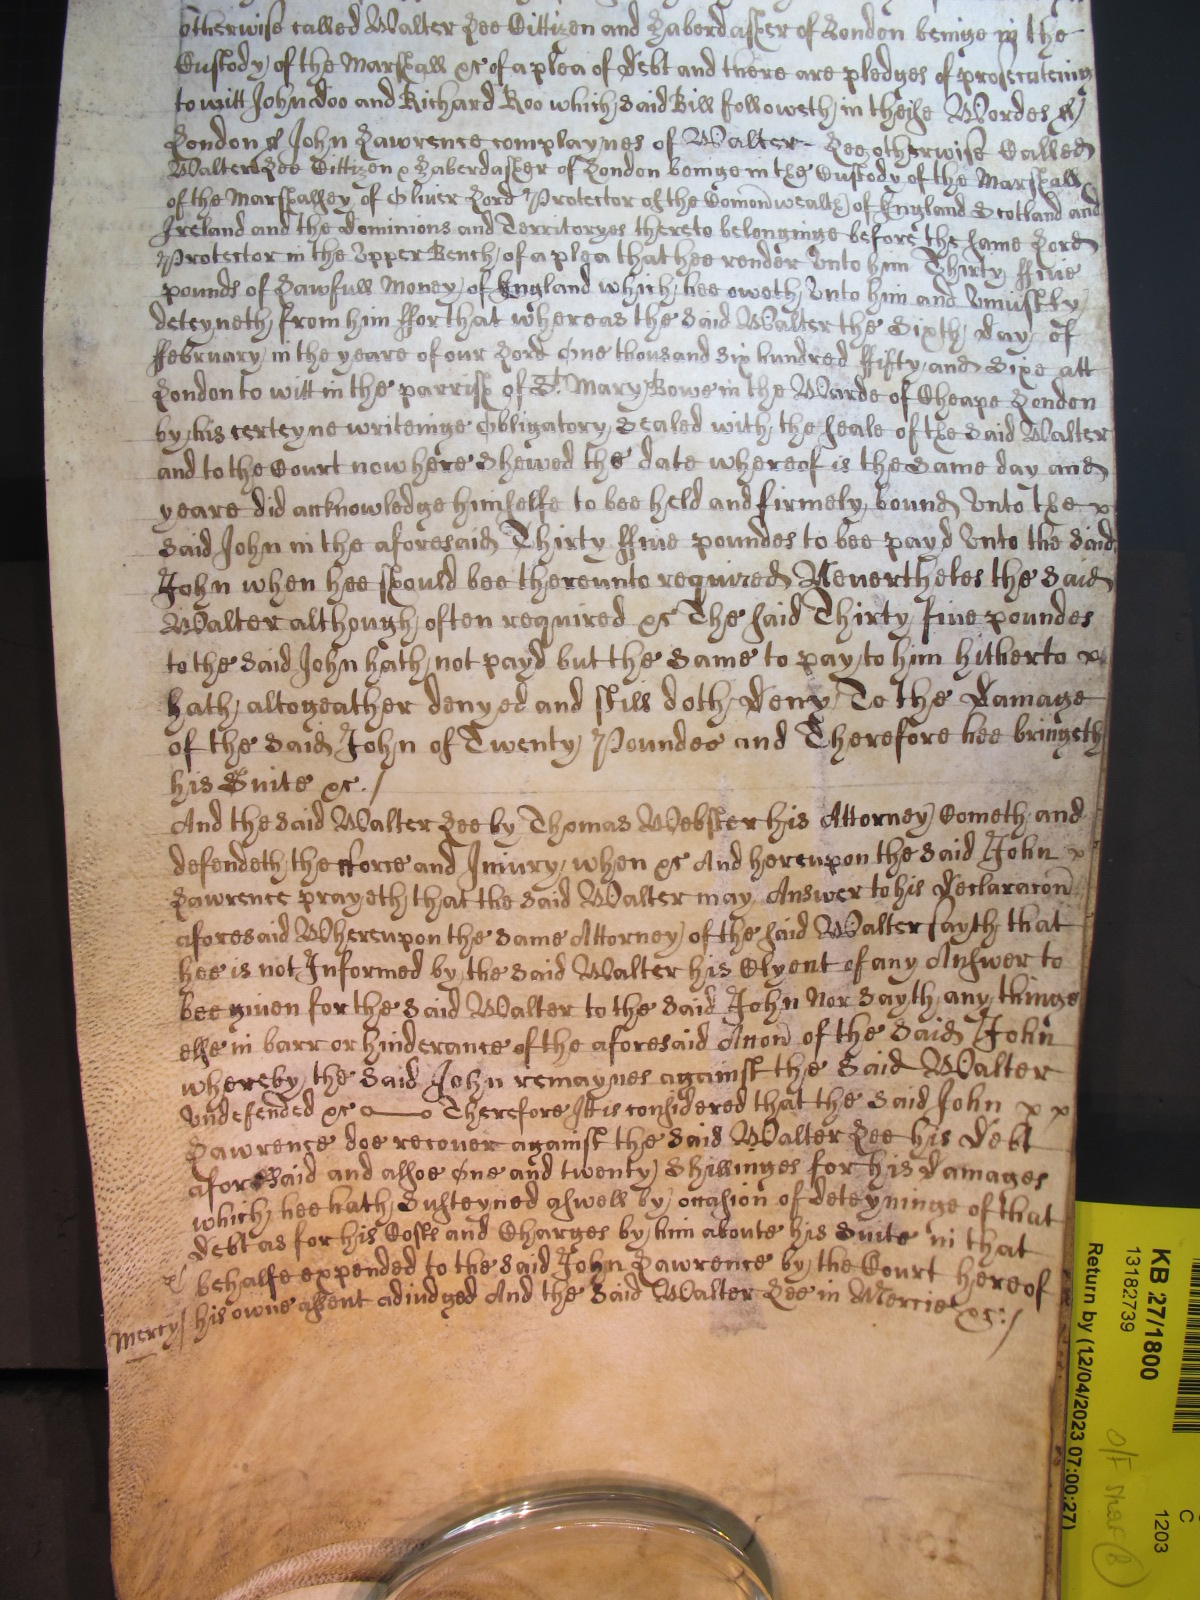 otherwise called Walter Lee Cittizen and Haberdasher of London beinge in the
Custody of the Marshall &c of a plea of Debt and there are pledges of prosecuteing
to witt John doo and Richard Roo which said Bill followeth in theise Wordes ss
London ss John Lawrence complaynes of Walter - Lee otherwise Called
Walter Lee Cittizen & Haberdasher of London beinge in the Custody of the Marshall
of the Marshalsey of Oliver Lord Protector of the Comonwealth of England Scotland and
Ireland and the Dominions and Territoryes thereto belonginge before the same Lord
Protector in the Upper Bench of a plea that hee render unto him Thirty ffive
pounds of Lawfull Money of England which hee oweth unto him and uniustly
deteyneth from him ffor that whereas the said Walter the Sixth day of
ffebruary in the yeare of our Lord One thousand Six hundred ffifty and Sixe att
London to witt in the parrish of St. Mary Bowe in the Warde of Cheape London
by his certeyne writeinge Obligatory Sealed with the seale of the said Walter
and to the Court now here Shewed the date whereof is the same day and
yeare did acknowledge himselfe to bee held and firmely bound unto the x
said John in the aforesaid Thirty ffive poundes to bee payd unto the said
John when hee should bee thereunto required Neverthelesse the said
Walter although often required &c The said Thirty five poundes
to the said John hath not payd but the same to pay to him hitherto x
hath altogeather denyed and still doth Deny To the Damage
of the said John of Twenty Poundes and Therefore hee bringeth
his Suite &c. /
And the said Walter Lee by Thomas Webster his Attorney Cometh and
defendeth the fforce and Iniury when &c And hereupon the said John x
Lawrence prayeth that the said Walter may Answer to his Declaracon
aforesaid Whereupon the same Attorney of the said Walter sayth that
hee is not Informed by the said Walter his Clyent of any Answer to
bee given for the said Walter to the said John Nor sayth any thinge
else in barr or hinderance of the aforesaid Accon of the said John
whereby the said John remaynes against the said Walter
undefended &c Therefore It is considered that the said John x x
Lawrence doe recover against the said Walter Lee his Debt
aforesaid and alsoe One and twenty Shillinges for his Damages
which hee hath Susteyned aswell by occasion of deteyninge of that
Debt as for his Costs and Charges by him aboute his Suite in that
behalfe expended to the said John Lawrence by the Court hereof
his owne assent adiudged And the said Walter Lee in Mercie &c:/
Mercy
KB 27/1800
13182739
Return by (12/04/2023 07:00:27)
C
1203